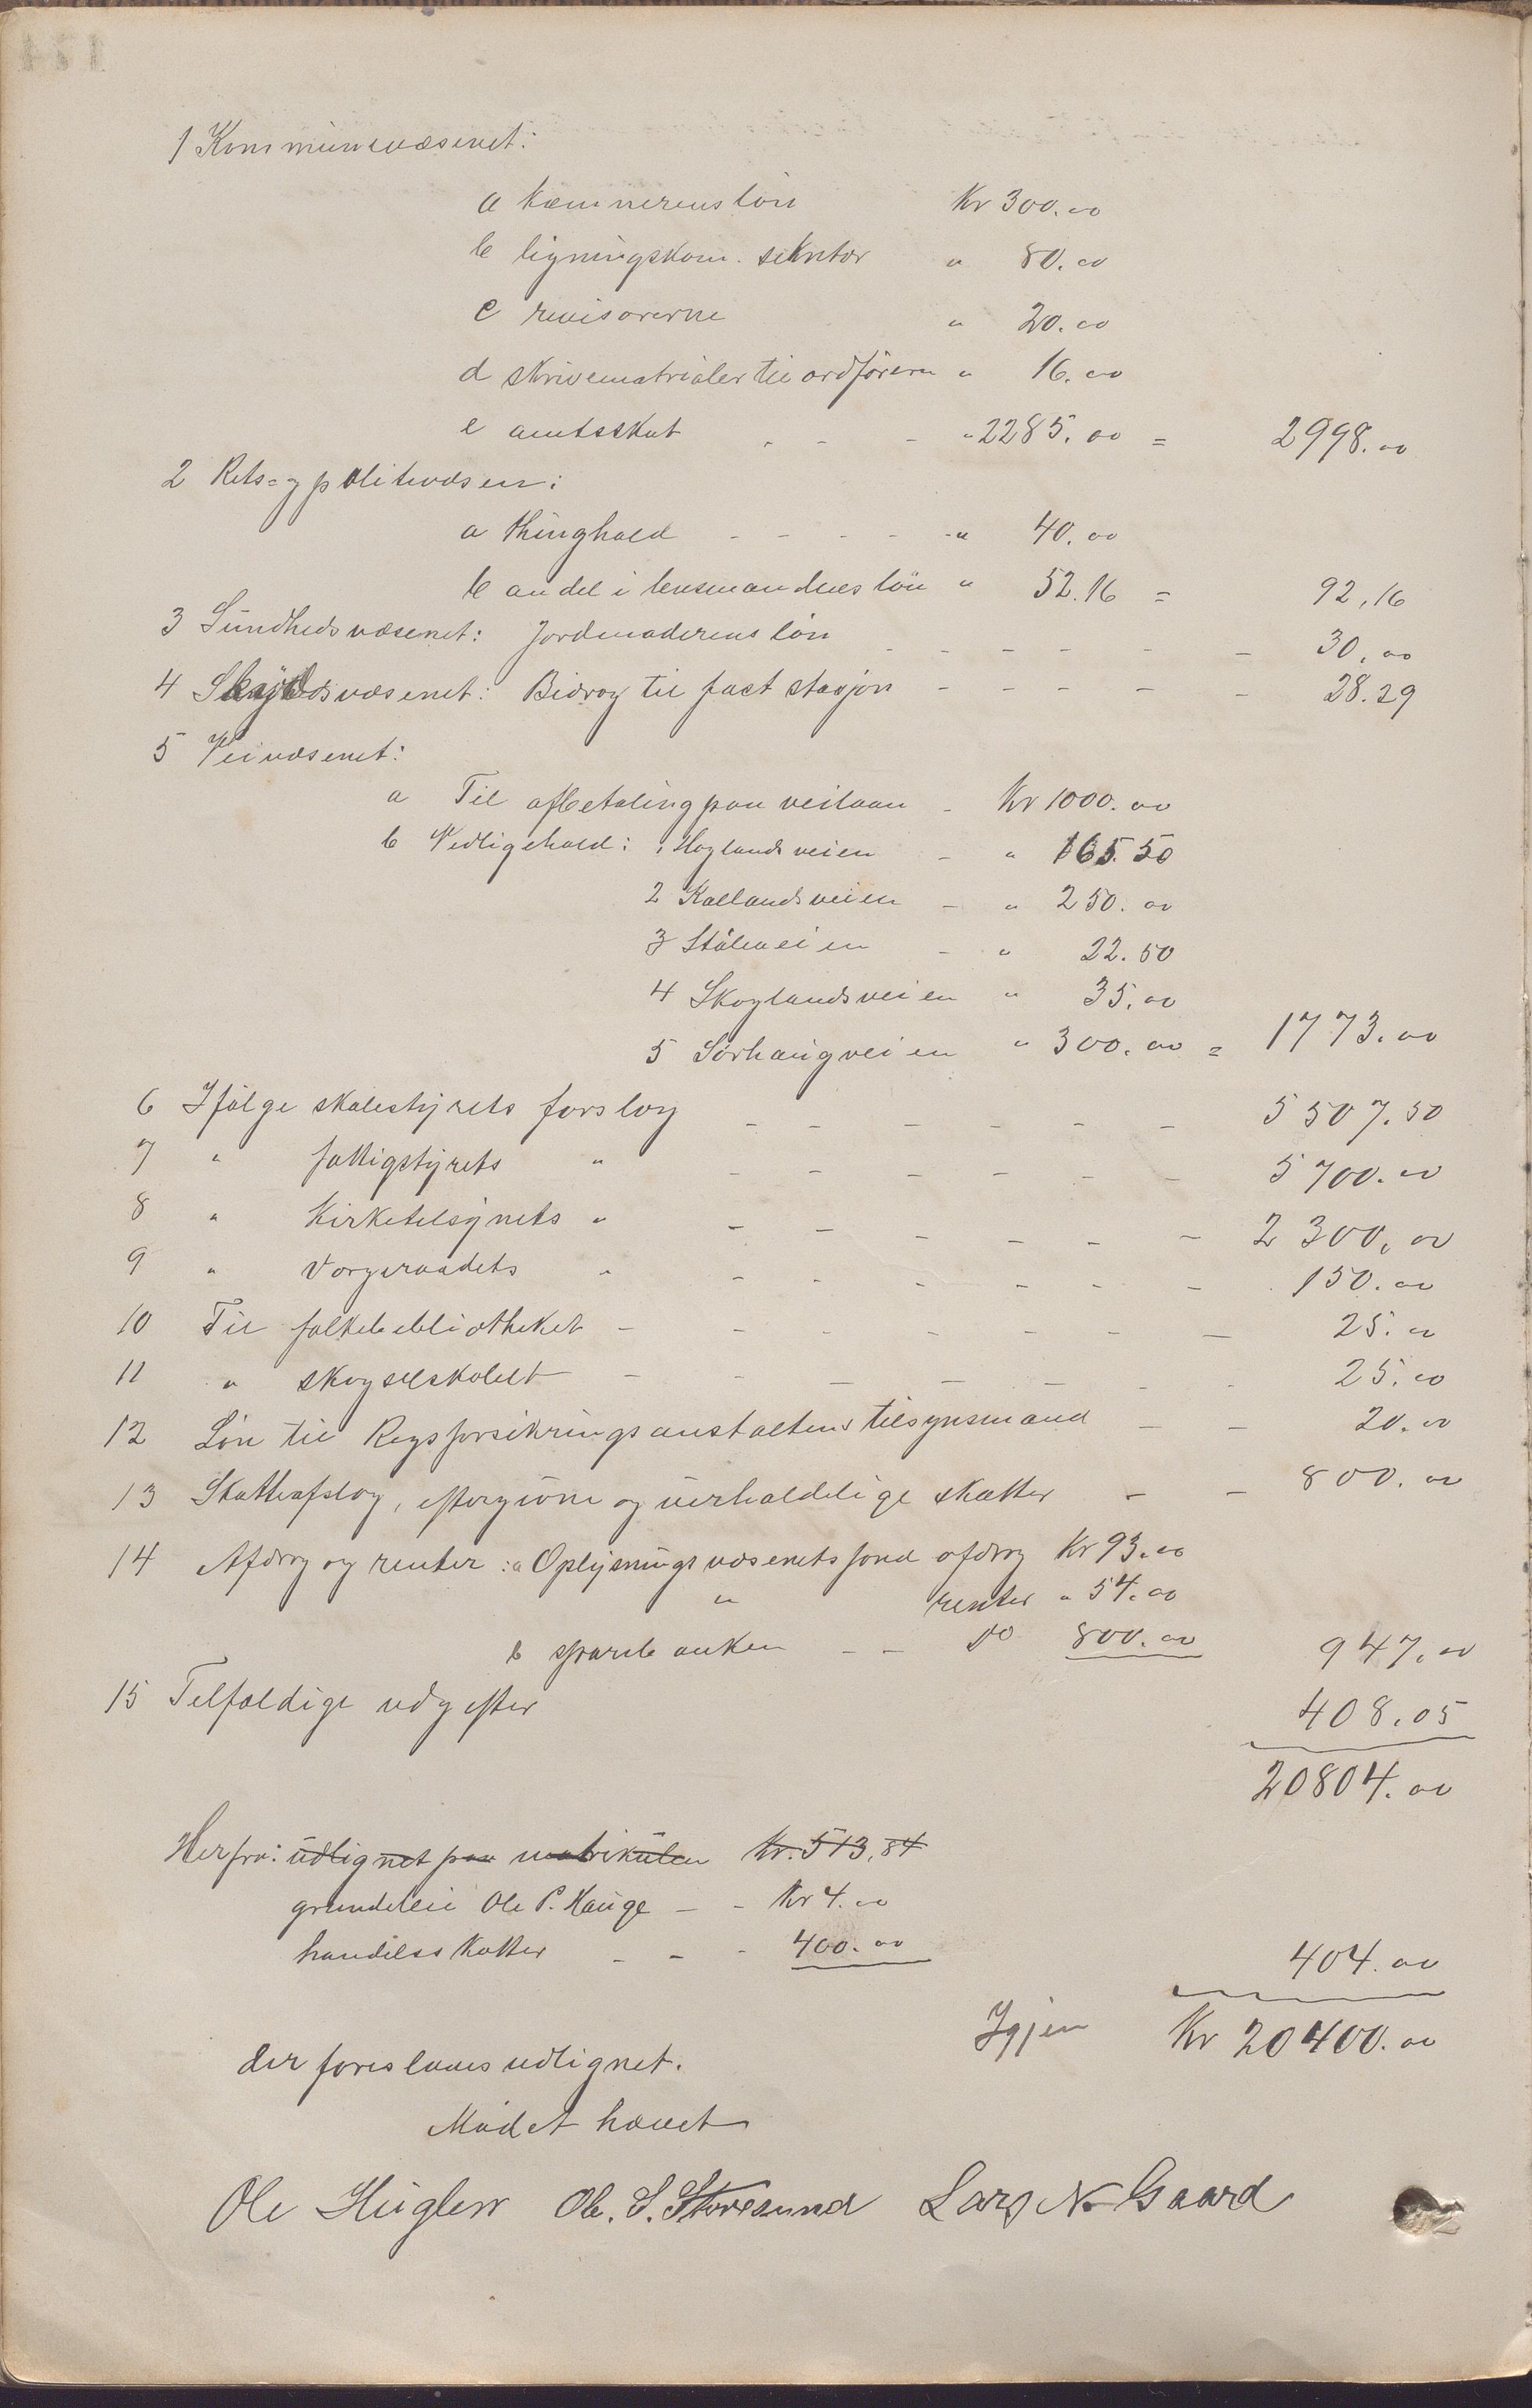 1 Kommunevæsenet:
a kæmnerens løn Kr 300.00
b ligningskom. sekretær " 80.00
c revisorerne " 20.00
d skrivematrialer til ordføreren " 16.00
e amtsskat - - - " 2285.00 = 2998.00
2 Rets- og politivæsen:
a thinghold - - - - - " 40.00
b andel i lensmandens løn " 52.16 = 92,16
3 Sundhedsvæsenet: Jordmoderens løn - - - - - - 30.00
4 Skydsvæsenet: Bidrag til fast stasjon - - - - - 28.29
5 Veivæsenet:
a Til afbetaling paa veilaan - Kr 1000.00
b Vedligehold: 1 Haglandsveien - " 165.50
2 Kallandsveien - " 250.00
3 Støleveien - " 22.50
4 Skoglandsveien " 35.00
5 Sørhaugveien " 300.00 = 1773.00
6 Ifølge skolestyrets forslag - - - - - - 5507.50
7 " fattigstyrets " - - - - - - 5700.00
8 " Kirketilsynets " - - - - - - 2300.00
9 " Vergeraadets " - - - - - - 150.00
10 Til folkebibliotheket - - - - - - - 25.00
11 " skogselskabet - - - - - - - 25.00
12 Løn til Rigsforsikringsanstaltens tilsynsmand - - 20.00
13 Skatteafslag, eftergivne og uerholdelige skatter - - 800.00
14 Afdrag og renter: a Oplysningsvæsenets fond afdrag Kr 93.00
" renter " 54.00
b sparebanken - - do 800.00 947.00
15 Tilfældige udgifter 408.05
20804.00
Herfra: udlignet paa matrikulen Kr. 513,84
grundleie Ole P. Hauge - - Kr 4.00
handelsskatter - - - 400.00 404.00
Igjen Kr 20400.00
der foreslaaes udlignet.
Mødet hævet
Ole Huglen Ole. S. Storesund Lars N Gaard